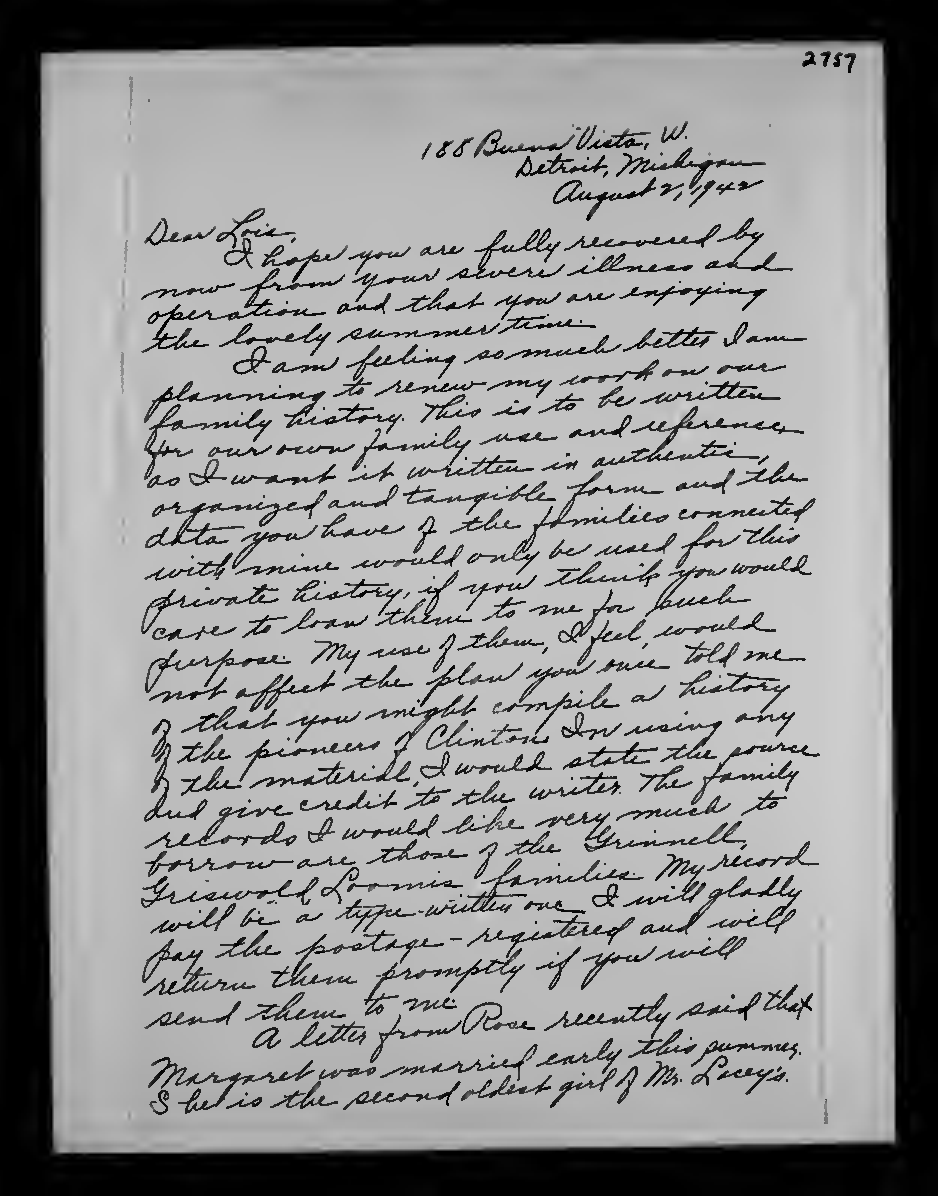 2757
188 Buena Vista, W.
Detroit, Michigan
August 2, 1942
Dear Lois,
I hope you are fully recovered by
now from your severe illness and
operation and that you are enjoying
the lovely summer time.
I am feeling so much better I am
planning to renew my work on our
family history. This is to be written
for our own family use and reference,
as I want it written in authentic,
organized and tangible form and the
data you have of the families connected
with mine would only be used for this
private history, if you think you would
care to loan them to me for such
purpose. My use of them, I feel, would
not affect the plan you once told me
of that you might compile a history
of the pioneers of Clinton. In using any
of the material, I would state the source
and give credit to the writer. The family
records I would like very much to
borrow are those of the Grinnell,
Griswold, Loomis families. My record
will be a type-written one. I will gladly
pay the postage - registered and will
return them promptly if you will
send them to me.
A letter from Rose recently said that
Margaret was married early this summer.
She is the second oldest girl of Mr. Lacey's.